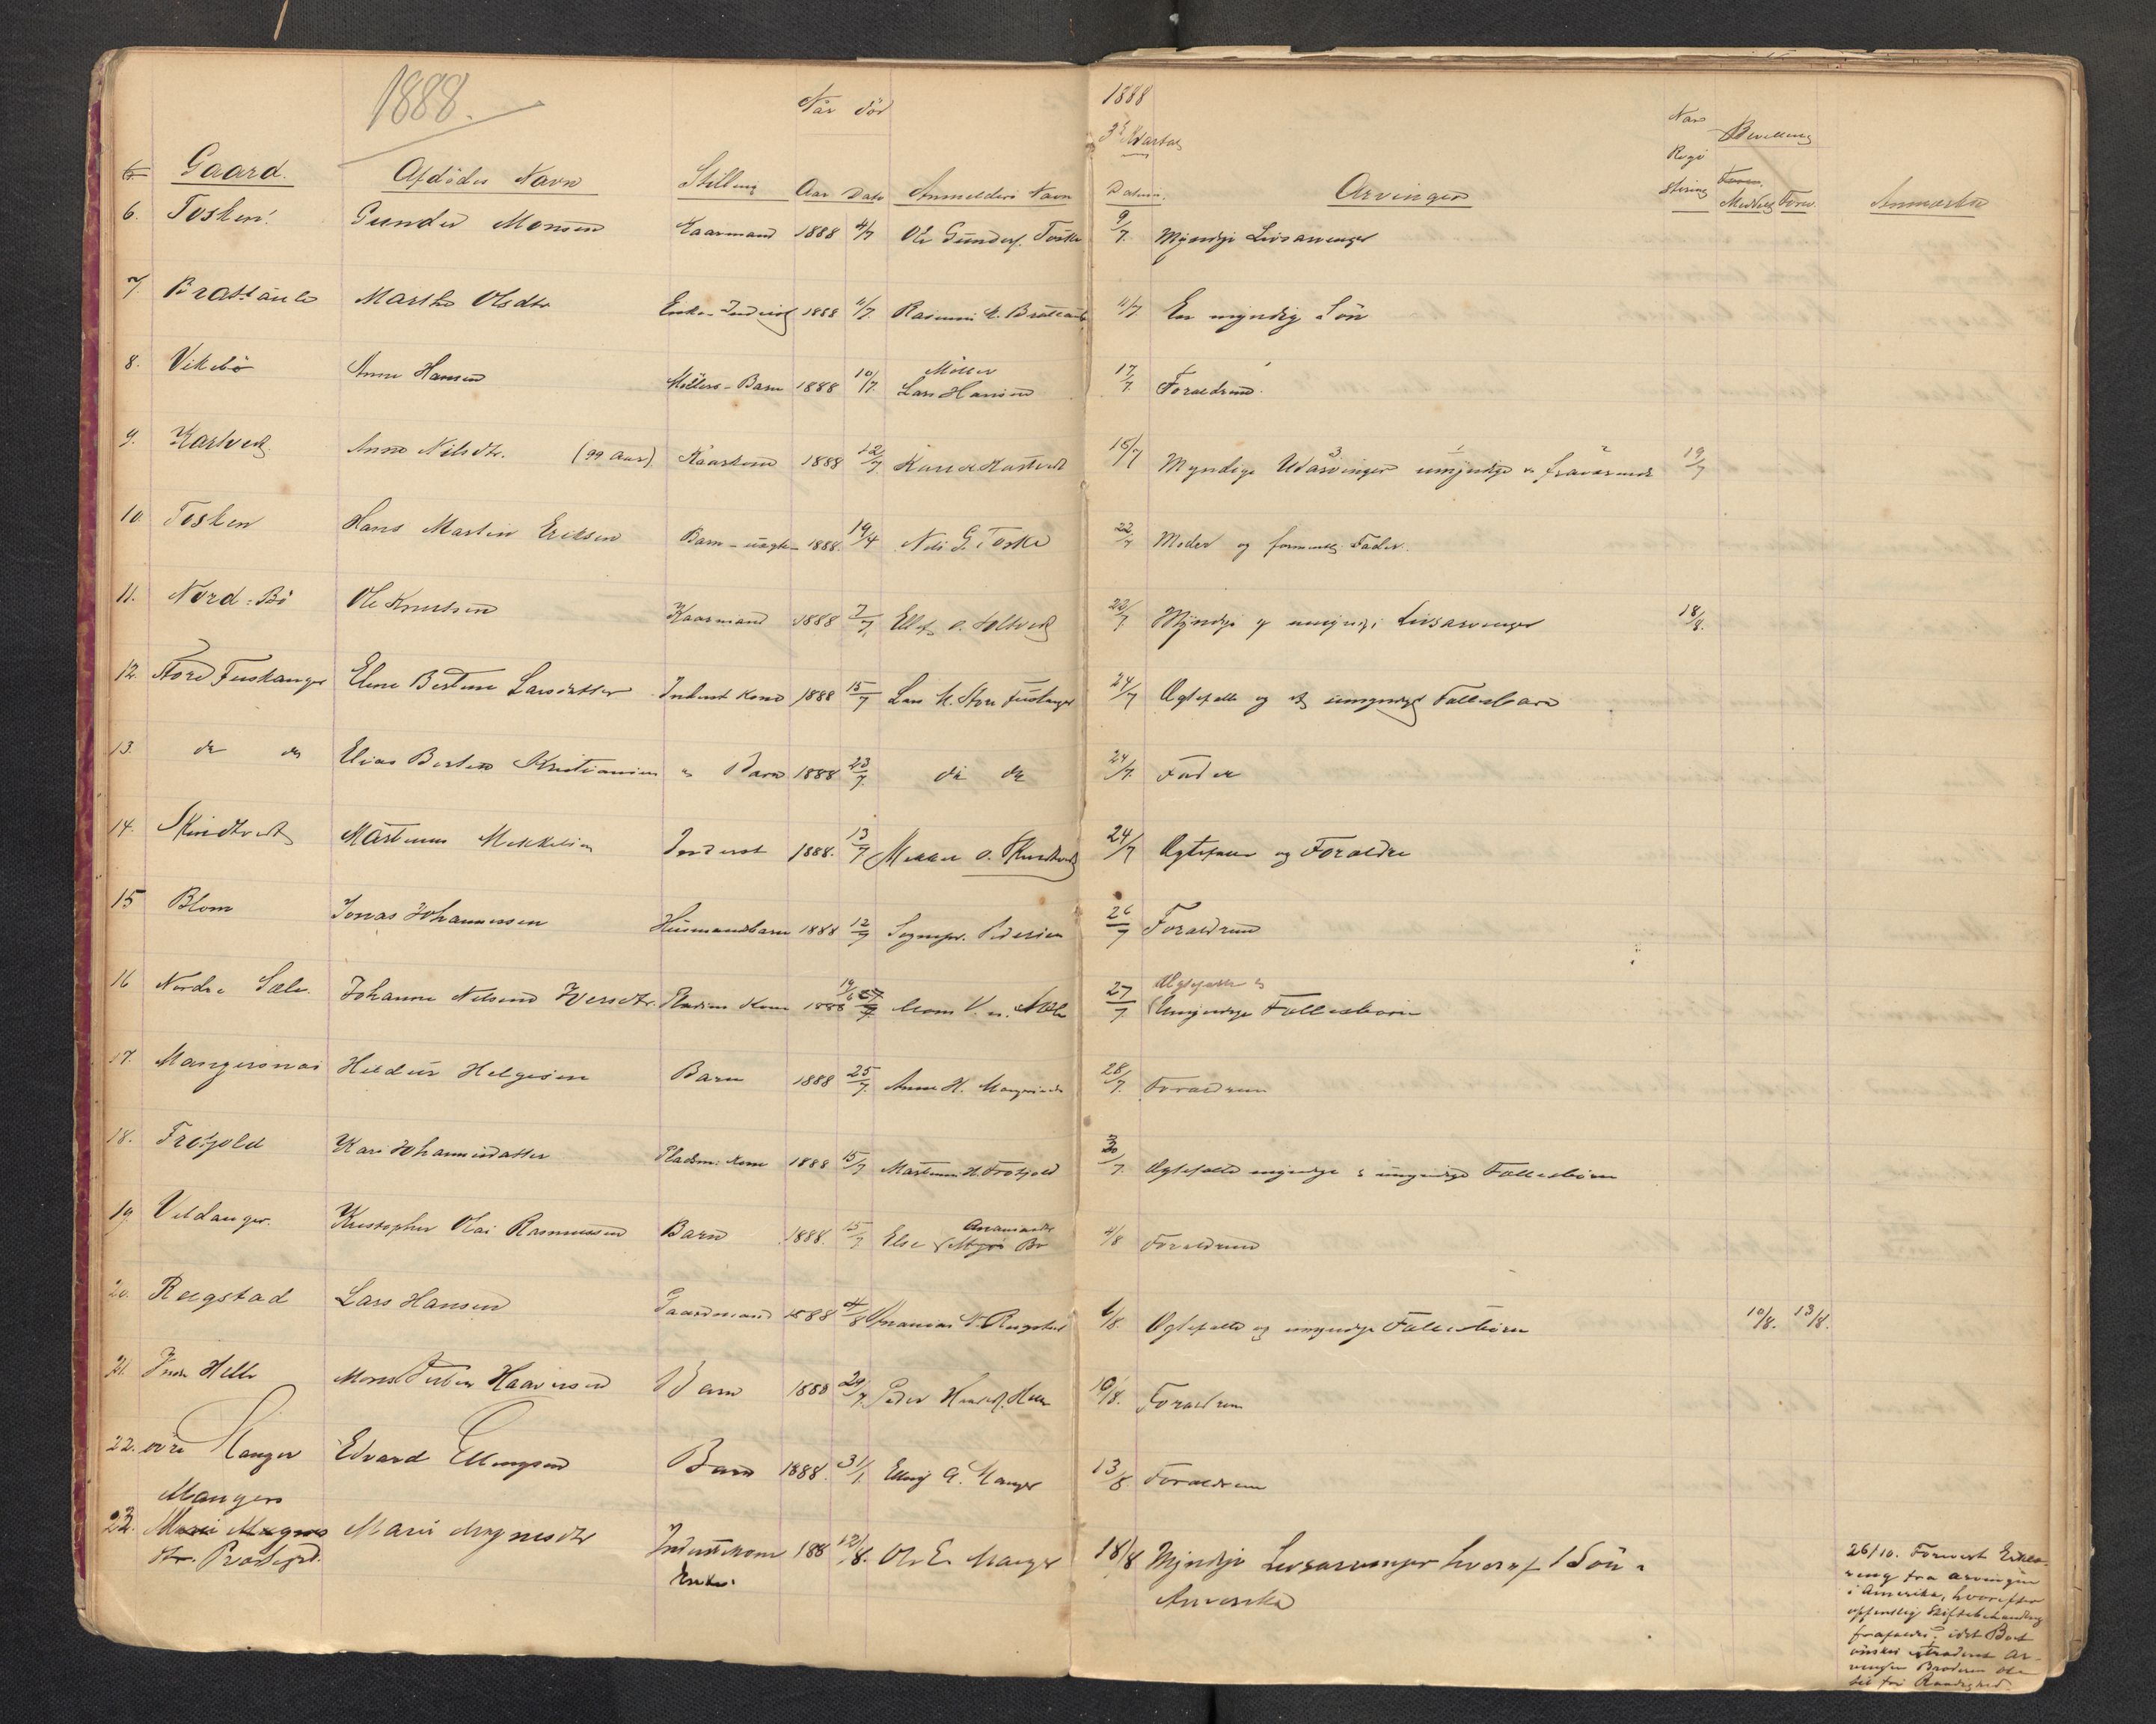 1888.
Når död
Gaard. Afdödes Navn Stilling Aar Dato Anmelders Navn
6. Tosken. Gunder Monsen Kaarmand 1888 4/7 Ole Gunders. Toske
7. Brattaule Marthe Olsdtr Enke-Inderst 1888 11/7 Rasmus K. Brattaule
8. Vikebö Anne Hansen Möllers-Barn 1888 10/7 Möller
Lars Hansen
9. Kartveit Anna Nilsdtr. (99 Aar) Kaarkone 1888 12/7 Kartveit
10. Tosken Hans Martin Eriksen Barn-uægte 1888. 19/4 Nils G. Toske
11. Nord-Bö Ole Knutsen Kaarmand 1888 7/7 O. Soltveit
12. Store Fuskanger Elene Bertine Larsdatter Inderst Kone 1888 15/7 Lars M. Store Fuskanger
13. do do Elias Bertin Kristiansen " Barn 1888 23/7 do do
14. Skindtveit Martinus Mikkelsen Inderst 1888. 13/7 Mikkel O. Skindtveit
15 Blom Jonas Johannessen Husmandsbarn 1888 12/7 Sognepr. Pedersen
16 Nordre Sæle. Johanne Nilsine Iversdtr. Pladsm Kone 1888 19/6 Mons
17. Mangersnæs Heldur Helgesen Barn 1888 25/7 Anne H. Mangersnæs
18. Trotjold Kari Johannesdatter Pladsm. Kone 1888 15/7 Martinus H. Trotjold
19. Vetdanger. Kristopher Olai Rasmussen Barn 1888. 15/7 Else Ananiasdtr
Bö
20. Rugstad Lars Hansen Gaardmand 1888 4/8 Ananias H. Rugstad
21. Indre Helle Mons Torber Haaversen Barn 1888 24/7 Peder Helle
22. övre Manger Edvard Ellingsen Barn 1888. 31/1 Elling A. Manger
Mangers
23. Mari Magnes Mari Magnesdtr Inderstkone 188 12/8. Ole E. Manger
Prestegrd. Enke.
1888
3die Kvartal
Datum. Arvinger Naar Regi string Bevilling Form. Medtag Forev. Anmærkn
9/7. Myndige Livsarvinger
11/7 En myndig Sön
17/7. Forældrene.
15/7 Myndige Udarvinger umyndige og fraværende 19/7
22/7 Moder og formentlig Fader.
23/7. Myndige og umyndige Livsarvinger 18/8.
24/7 Ægtefælle og et umyndigt Fællesbarn
24/7. Fader
24/7 Ægtefælle og Forældre
26/7 Forældrene
27/7 Ægtefælle og
Umyndige Fællesbörn
28/7. Forældrene
30/7. Ægtefælle myndige & umyndige Fællesbörn
4/8 Forældrene
6/8. Ægtefælle og umyndige Fællesbörn 10/8. 13/8.
10/8. Forældrene
13/8 Forældrene
18/8 Myndige Livsarvinger hvoraf 1 Sön i
Amerika
26/10. Forevist Erklæ-
ring fra Arvingen
i Amerika, hvorefter
offentlig Skiftebehandling
frafaldes, idet Boet
önskes extraderet Ar-
vingen Broderen Ole
til fri Raadighed.